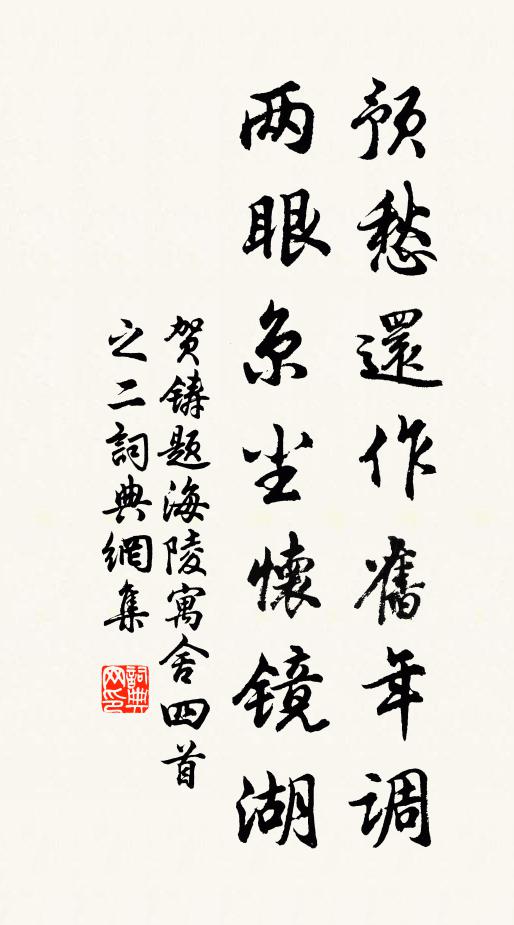 预愁還作舊年调
两眼京尘懷镜湖
贺铸题海陵寓舍四首
之二詞典網集
詞典
网印